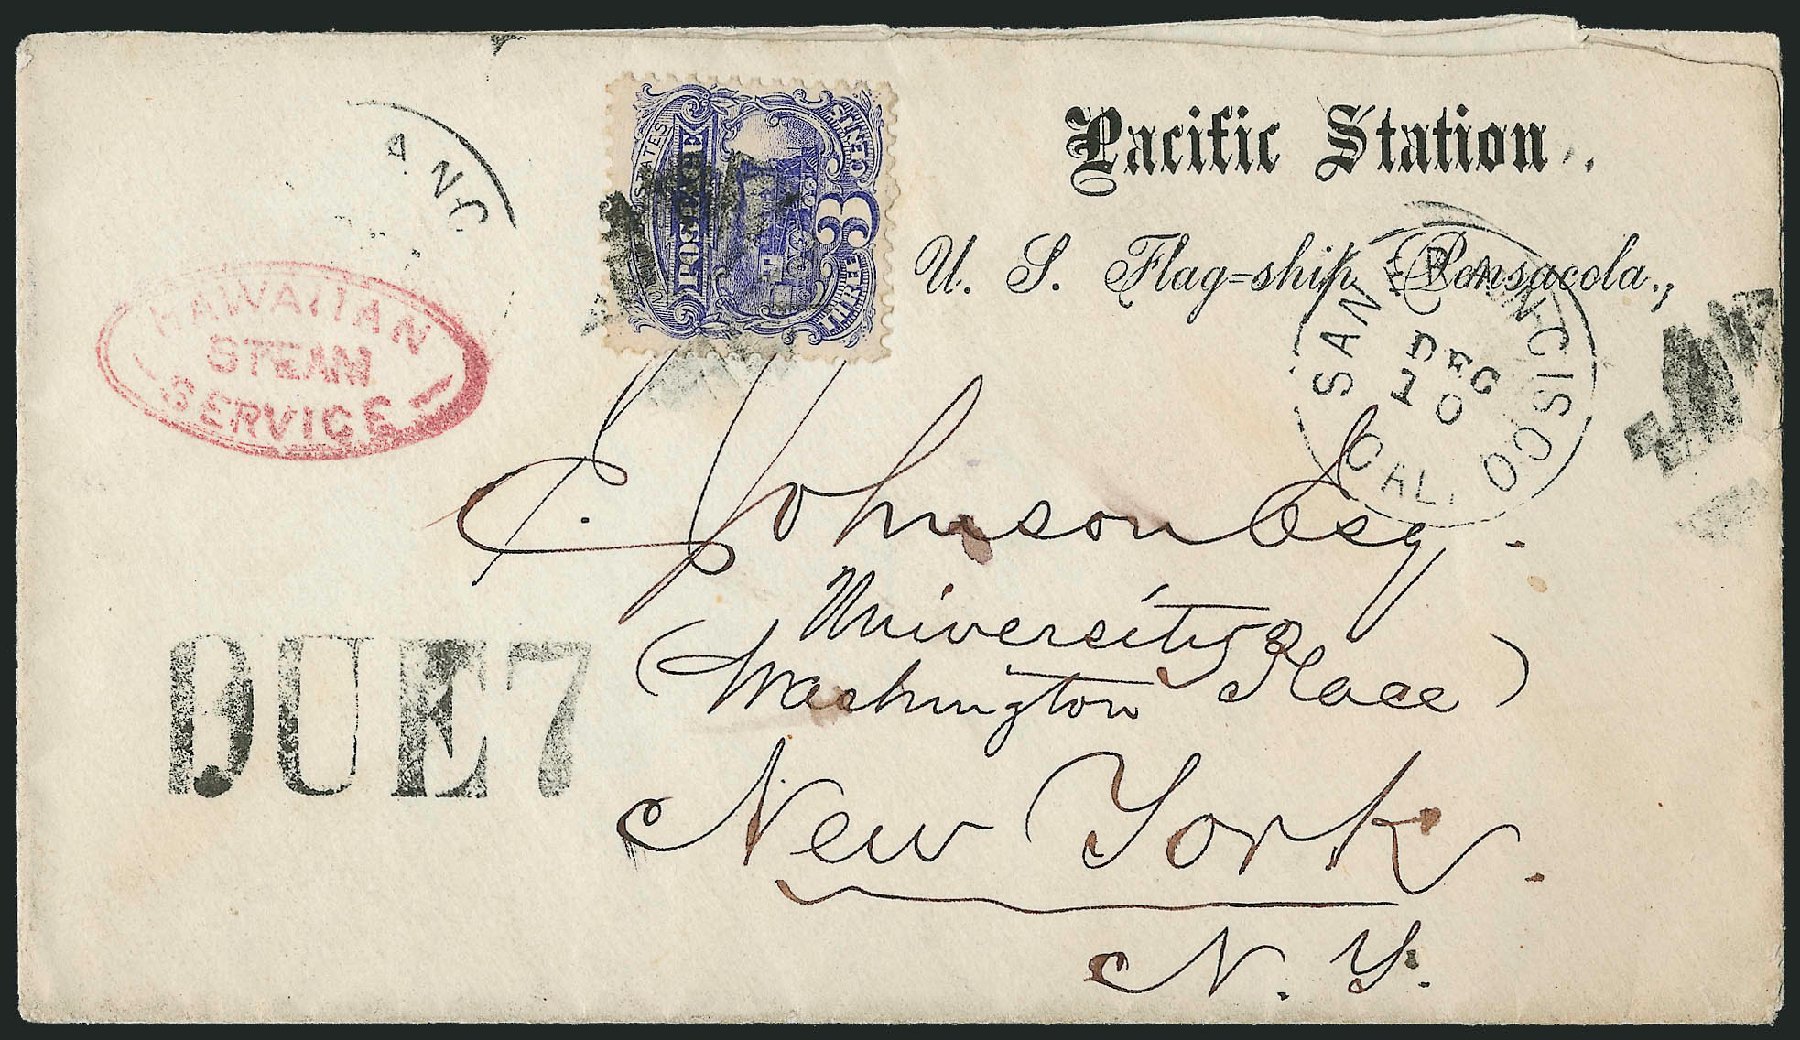 Pacific Station.,
U. S. Flag=ship Pensacola.,
STATES
POSTAGE
THREE 3 CENTS
ANC
SAN FRANCISCO
DEC
10
CAL.
HAWAIIAN
STEAM
SERVICE
C. Johnson Esq.
University Place
(Washington
)
New York.
N. Y.
DUE 7